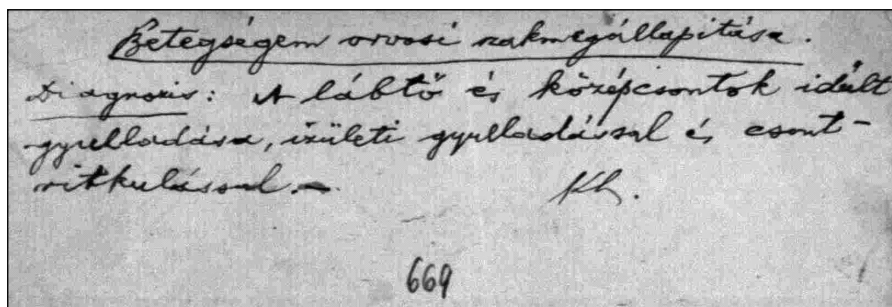 Betegségem orvosi szakmegállapítása.
Diagnozis: A lábtő és középcsontok idült
gyulladása, izületi gyulladással és csont-
ritkulással.—
Kh.
669